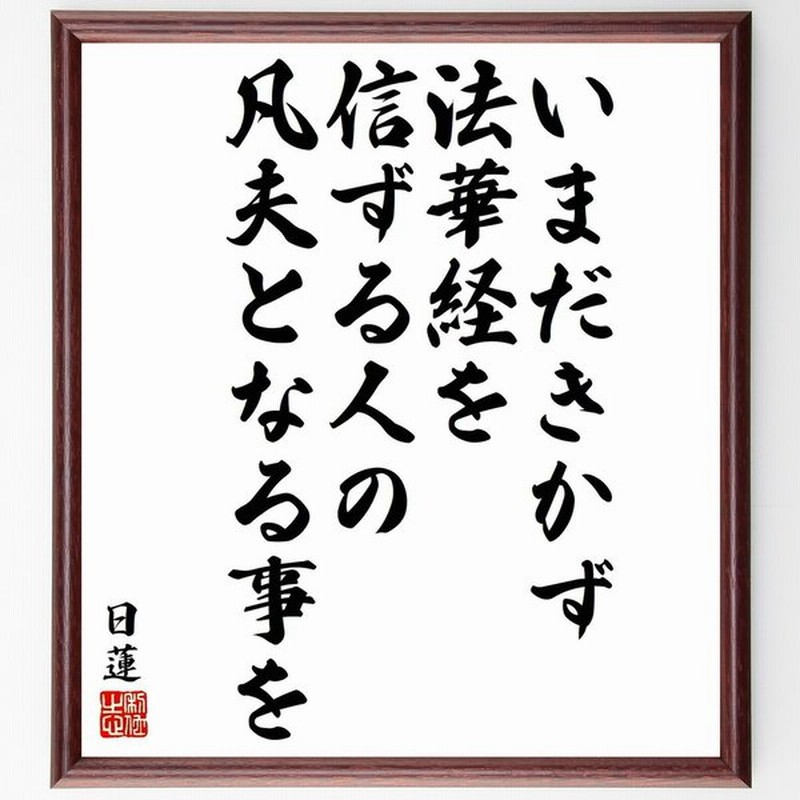 いまだきかず
法華経を
信ずる人の
凡夫となる事を
日蓮